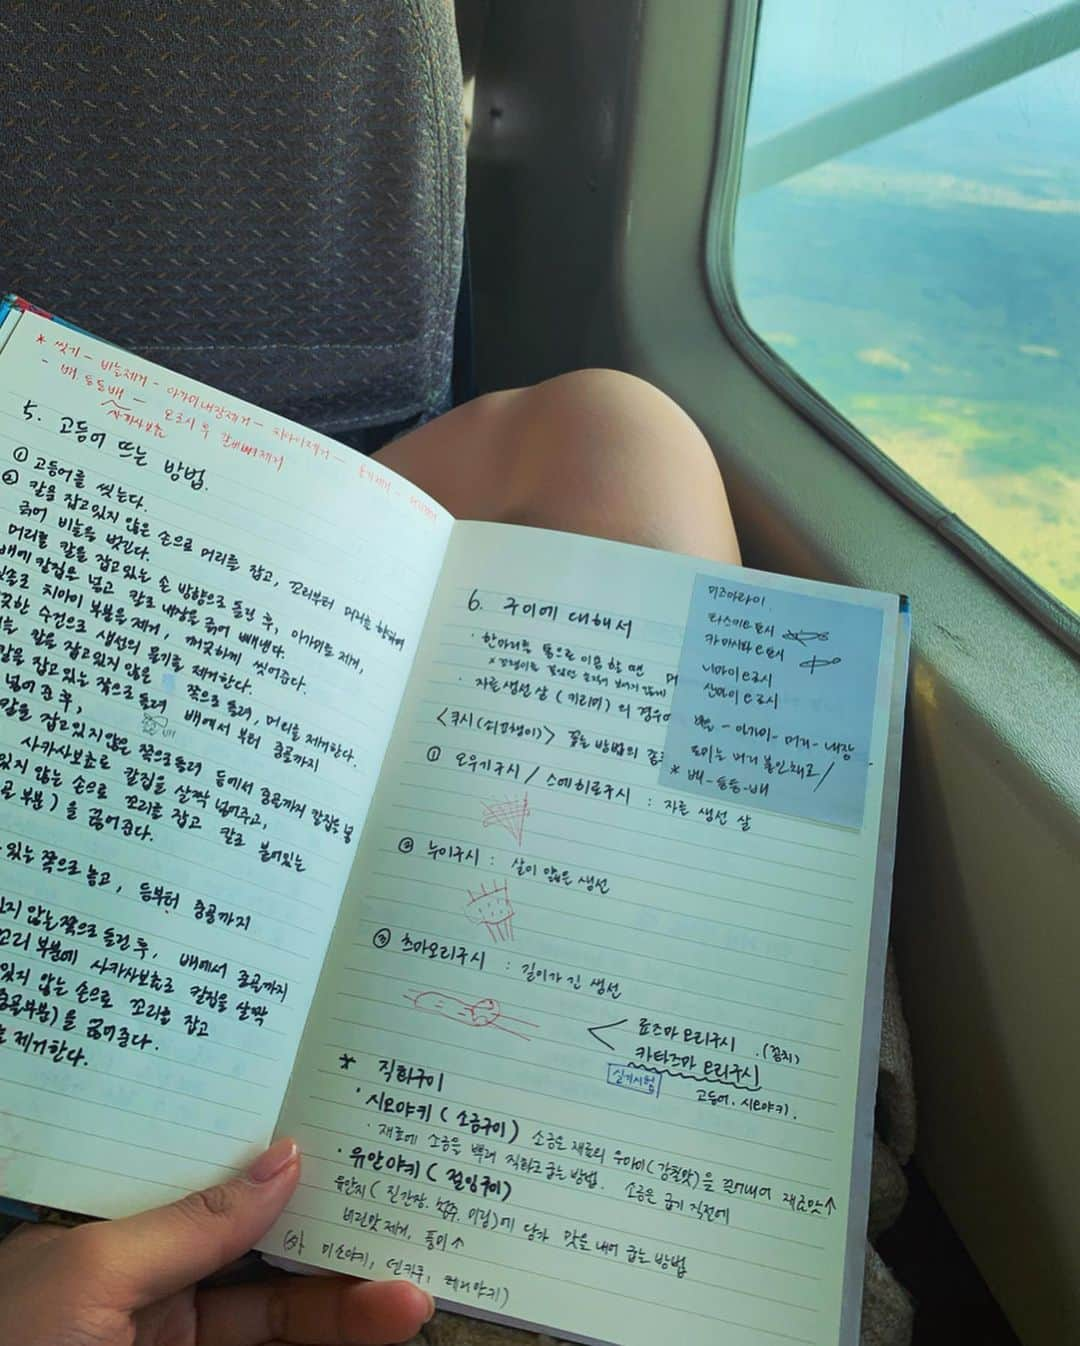 * 씻기 - 비늘제거 - 아가미내장제거 - 치아이제거 - 물기제거 -
- 배.등등배 - 오로시 후 갈비뼈제거
사카사보쵸
5. 고등어 뜨는 방법.
① 고등어를 씻는다.
② 칼을 잡고있지 않은 손으로 머리를 잡고, 꼬리부터 머리를 향하여
긁어 비늘을 벗긴다.
머리를 칼을 잡고있는 손 방향으로 돌린 후, 아가미를 제거,
배에 칼집을 넣고 칼로 내장을 긁어 빼낸다.
치아이 부분을 제거, 깨끗하게 씻어준다.
끗한 수건으로 생선의 물기를 제거한다.
칼을 잡고있지 않은 쪽으로 돌려, 머리를 제거한다.
칼을 잡고 있는 쪽으로 돌려 배에서 부터 중골까지
넣어 준 후,
칼을 잡고있지않은 쪽으로돌려 등에서 중골까지 칼집을 넣
사카사보쵸로 칼집을 살짝 넣어주고,
있지 않는 손으로 꼬리를 잡고 칼로 붙어있는
골 부분)을 끊어준다.
있는 쪽으로 놓고, 등부터 중골까지
있지 않는쪽으로 돌린 후, 배에서 중골까지
꼬리 부분에 사카사보쵸로 칼집을 살짝
있지 않는 손으로 꼬리를 잡고
중골부분)을 끊어준다.
제거한다.
6. 구이에 대해서
· 한마리를 통으로 이용 할 땐
· 자른생선 살 (키리미)의 경우
<쿠시(쇠꼬챙이)> 꽂는 방법의 종
① 오우기구시 / 스에히로구시 : 자른 생선 살
② 누이구시 : 살이 얇은 생선
③ 츠마오리구시 : 길이가 긴 생선
료즈마 오리구시. (꽁치)
카타즈마 오리구시
실기시험 고등어. 시오야키.
* 직화구이
· 시오야키 ( 소금구이 ) 소금은 재료의 우마미(감칠맛)을 끌어내어 재료맛↑
· 재료에 소금을 뿌려 직화로 굽는 방법. 소금은 굽기 직전에
· 유안야키 ( 절임구이 )
유안지 ( 진간장. 청주. 미림)에 담가 맛을 내어 굽는 방법
비린맛 제거, 풍미↑
미소야키, 덴가쿠, 테리야키)
미즈아라이.
타스미오로시
카미시타오로시
니마이오로시
산마이오로시
비늘 - 아가미 - 머리 - 내장
도미는 머리 붙인채로/
* 배 - 등등 - 배